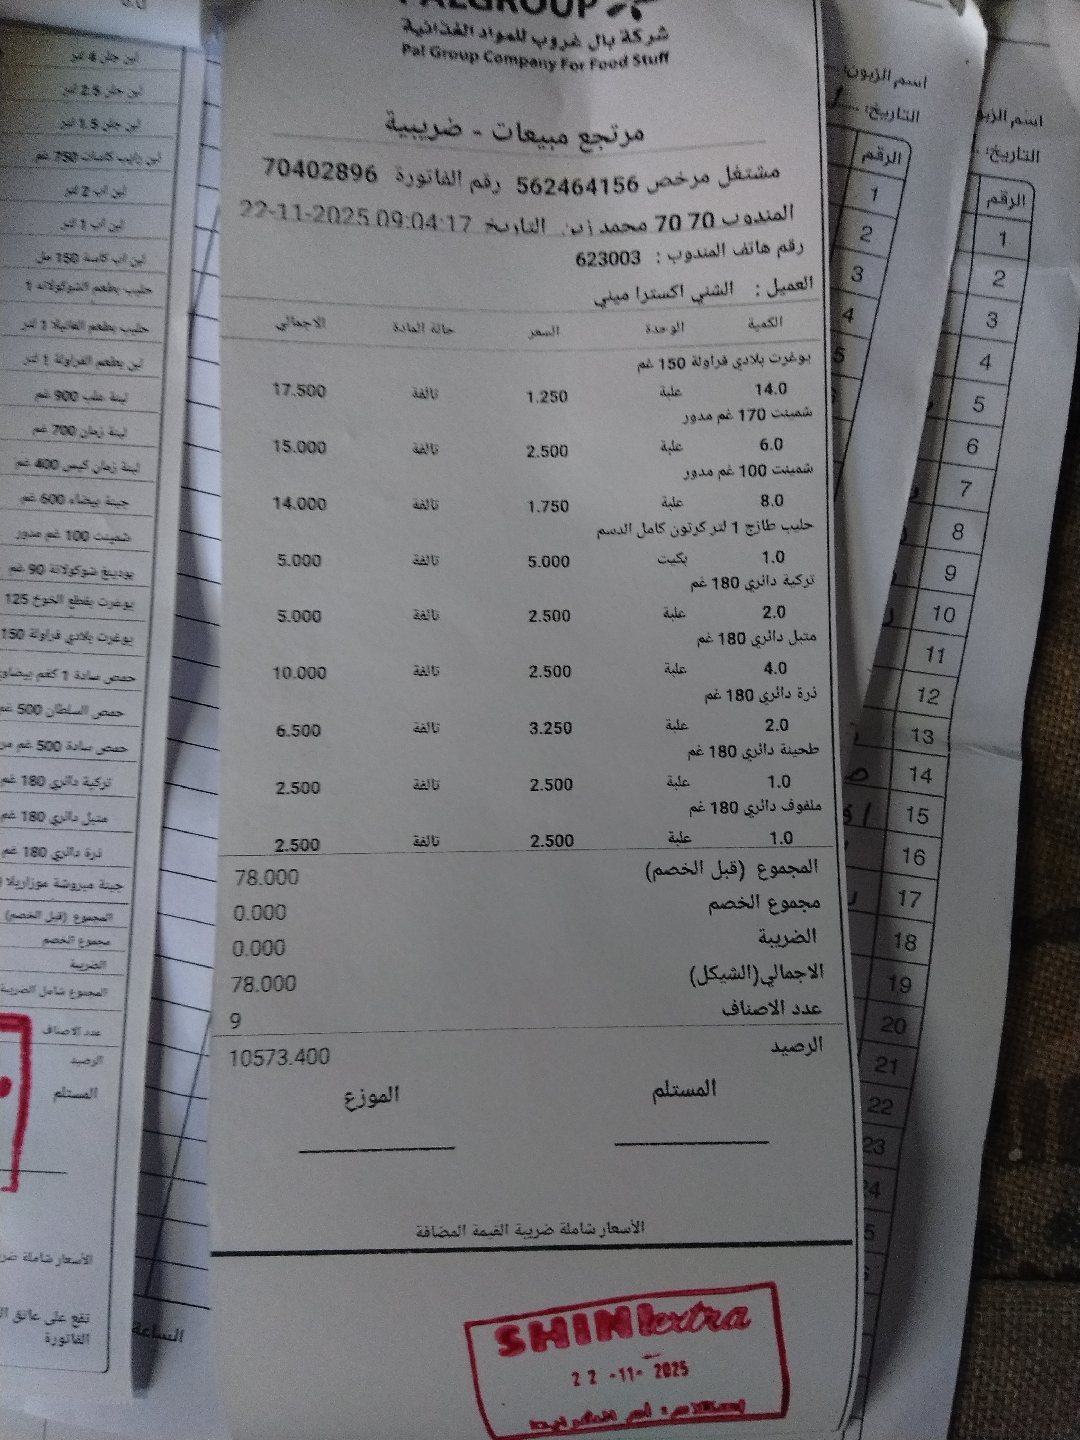 PALGROUP
شركة بال غروب للمواد الغذائية
Pal Group Company For Food Stuff
مرتجع مبيعات - ضريبية
مشتغل مرخص 562464156 رقم الفاتورة 70402896
المندوب 70 70 محمد زين التاريخ 22-11-2025 09:04:17
رقم هاتف المندوب : 623003
العميل : الشني اكسترا ميني
الكمية الوحدة السعر حالة المادة الاجمالي
يوغرت بلادي فراولة 150 غم
14.0 علبة 1.250 تالفة 17.500
شمينت 170 غم مدور
6.0 علبة 2.500 تالفة 15.000
شمينت 100 غم مدور
8.0 علبة 1.750 تالفة 14.000
حليب طازج 1 لتر كرتون كامل الدسم
1.0 بكيت 5.000 تالفة 5.000
تركية دائري 180 غم
2.0 علبة 2.500 تالفة 5.000
متبل دائري 180 غم
4.0 علبة 2.500 تالفة 10.000
ذرة دائري 180 غم
2.0 علبة 3.250 تالفة 6.500
طحينة دائري 180 غم
1.0 علبة 2.500 تالفة 2.500
ملفوف دائري 180 غم
1.0 علبة 2.500 تالفة 2.500
المجموع (قبل الخصم) 78.000
مجموع الخصم 0.000
الضريبة 0.000
الاجمالي(الشيكل) 78.000
عدد الاصناف 9
الرصيد 10573.400
المستلم الموزع
الأسعار شاملة ضريبة القيمة المضافة
SHINI extra
22 -11- 2025
لبن جلن 4 لتر
لبن جلن 2.5 لتر
لبن جلن 1.5 لتر
لبن رايب كاسات 750 غم
لبن اب 2 لتر
لبن اب 1 لتر
لبن اب كاسة 150 مل
حليب بطعم الشوكولاته 1
حليب بطعم الفانيلا 1 لتر
لبن بطعم الفراولة 1 لتر
لبنة علب 900 غم
لبنة زمان 700 غم
لبنة زمان كيس 400 غم
جبنة بيضاء 600 غم
شمينت 100 غم مدور
بودينغ شوكولاتة 90 غم
يوغرت بقطع الخوخ 125
يوغرت بلادي فراولة 150
حمص سادة 1 كغم بيضاوي
حمص السلطان 500 غم
حمص سادة 500 غم
تركية دائري 180 غم
متبل دائري 180 غم
ذرة دائري 180 غم
جبنة مبروشة موزاريلا
المجموع (قبل الخصم)
مجموع الخصم
الضريبة
المجموع شامل الضريبة
عدد الاصناف
الرصيد
المستلم
الأسعار شاملة
تقع على عاتق
الفاتورة
الساعة
اسم الزبون:
التاريخ:
الرقم
1
2
3
4
5
22
23
اسم الزبو
التاريخ:
الرقم
1
2
3
4
5
6
7
8
9
10
11
12
13
14
15
16
17
18
19
20
21